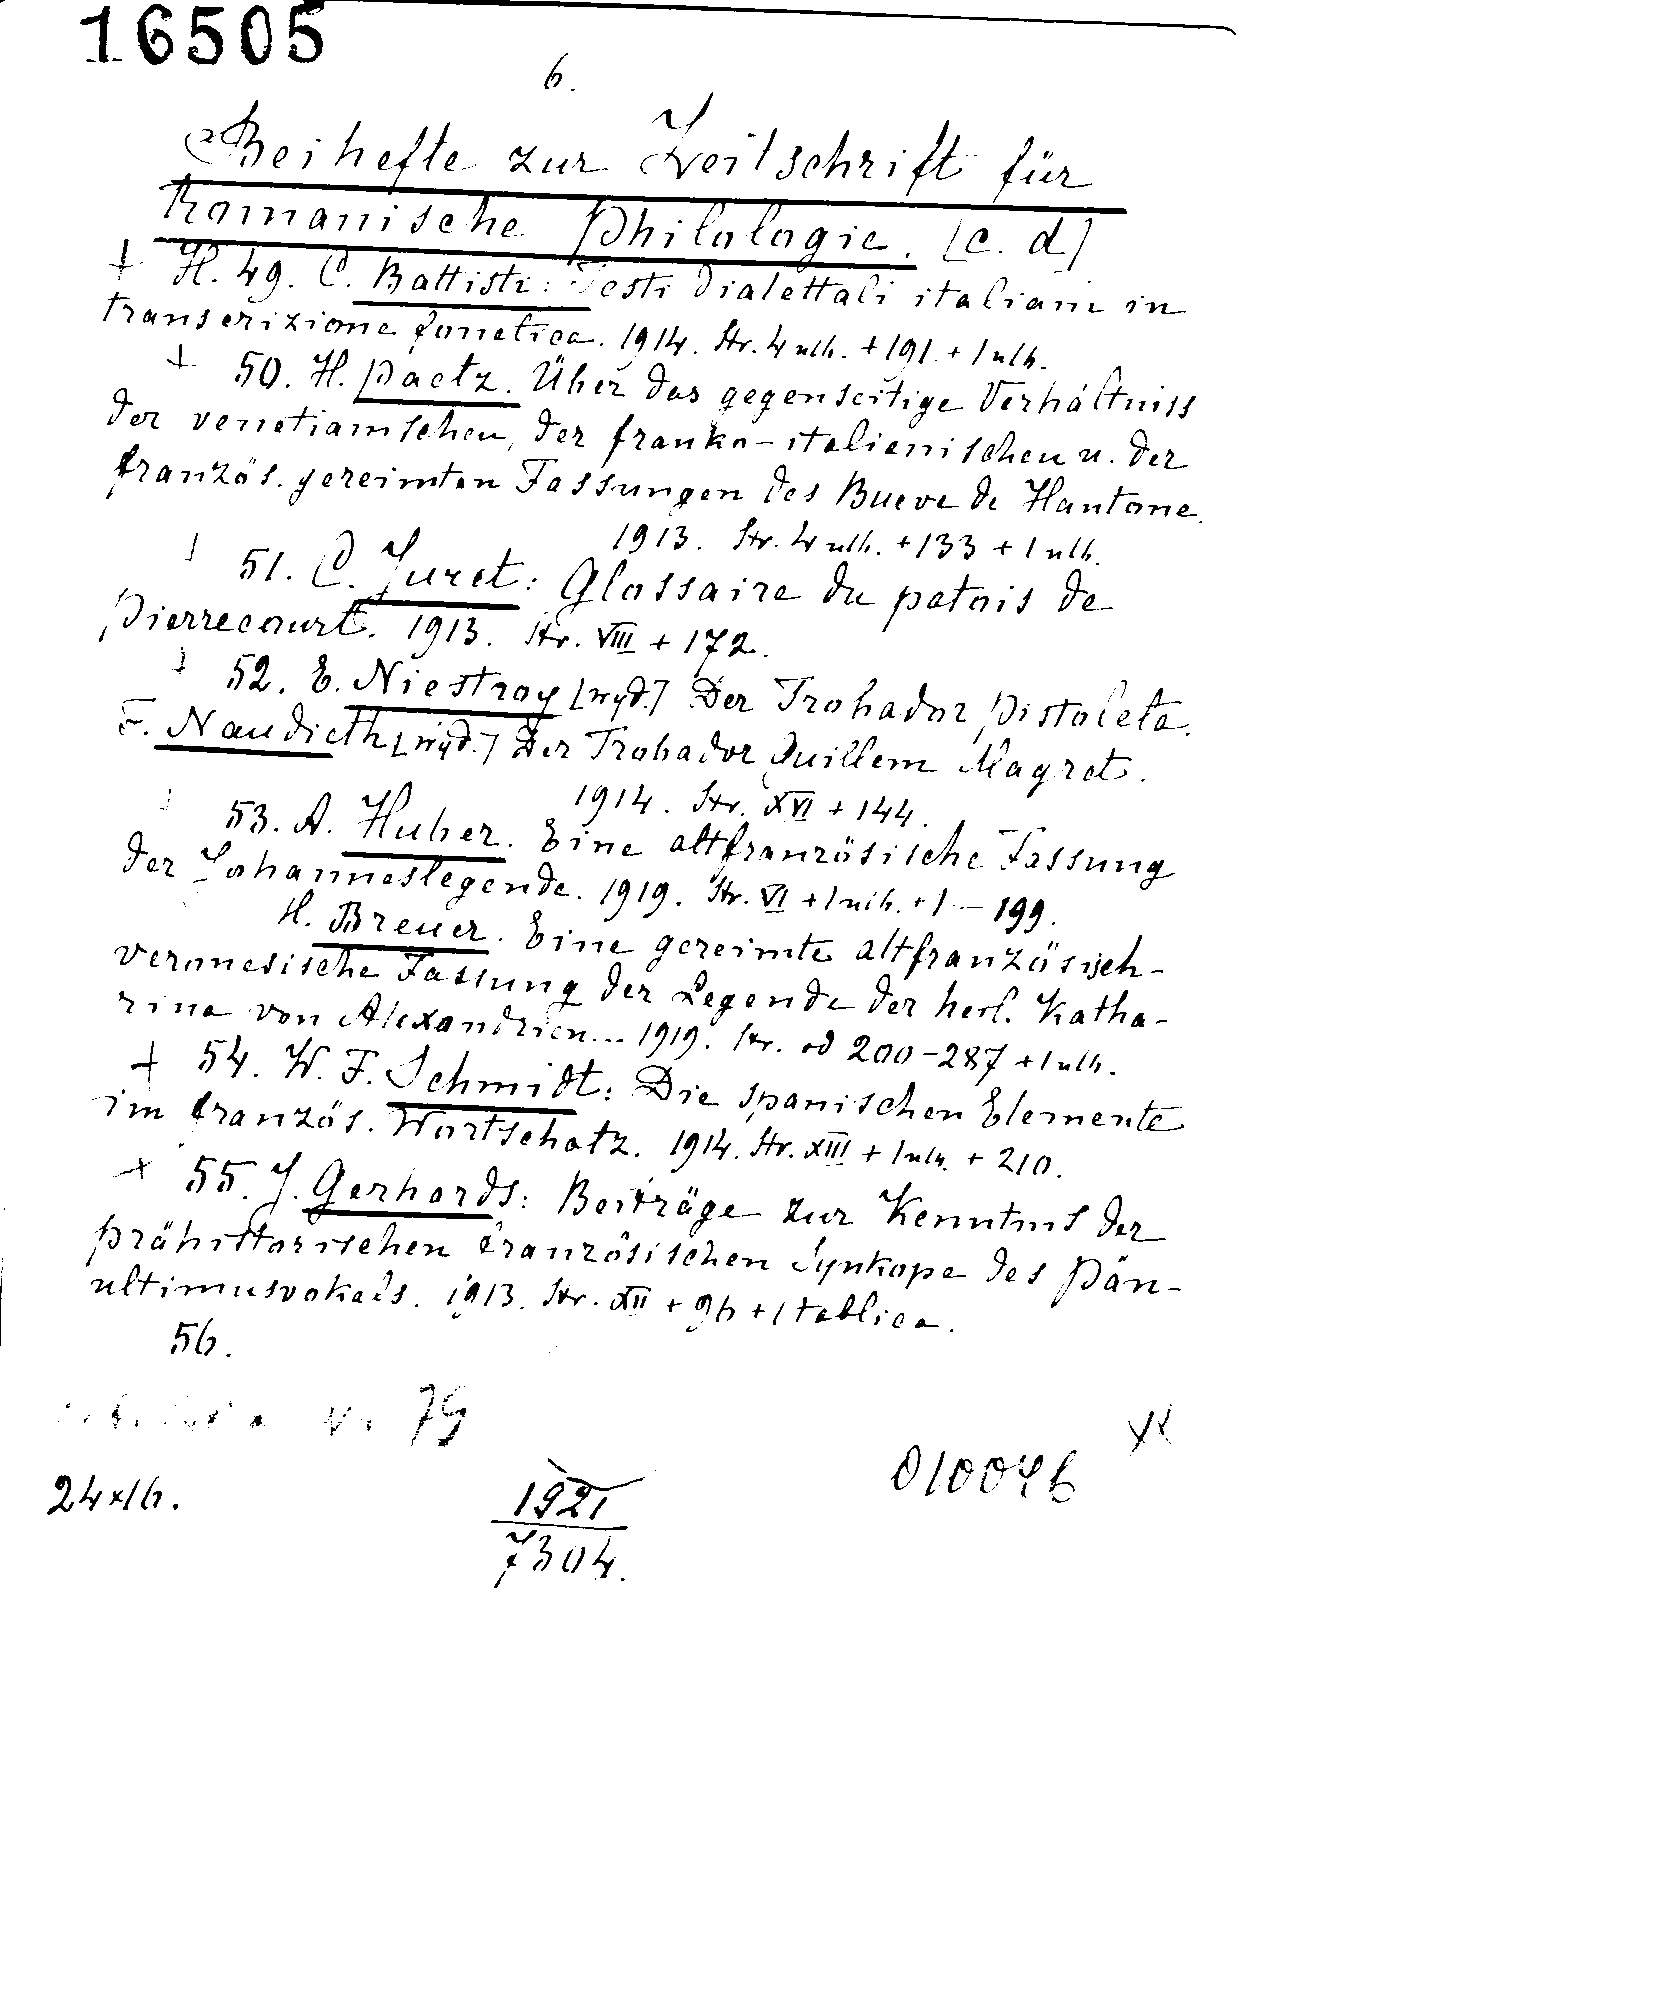 16505
6.
Beihefte zur Zeitschrift für
Romanische Philologie. [c. d]
+ H. 49. C. Battisti: Testi dialettali italiani in
transcrizione fonetica. 1914. Str. 4 nlb. + 191 + 1 nlb.
+ 50. H. Paetz. Über das gegenseitige Verhältniss
der venetianischen, der franko-italienischen u. der
französ. gereimten Fassungen des Bueve de Hantone.
1913. Str. 4 nlb. + 133 + 1 nlb.
51. C. Juret: Glossaire du patois de
Pierrecourt. 1913. Str. VIII + 172.
52. E. Niestroy [wyd.] Der Trobador Pistoleta.
F. Naudieth [wyd.] Der Trobador Guillem Magret.
1914. Str. XVI + 144.
53. A. Huber. Eine altfranzösische Fassung
der Johanneslegende. 1919. Str. VI + 1 nlb. + 1 - 199.
H. Breuer. Eine gereimte altfranzösisch-
veronesische Fassung der Legende der heil. Katha-
rina von Alexandrien... 1919. Str. od 200-287 + 1 nlb.
+ 54. W. F. Schmidt: Die spanischen Elemente
im französ. Wortschatz. 1914. Str. XIII + 1 nlb. + 210.
+ 55. J. Gerhards: Beiträge zur Kenntnis der
prähistorischen französischen Synkope des Pän-
ultimusvokals. 1913. Str. XII + 96 + 1 tablica.
56.
79
010046
24x16.
1921
7304.